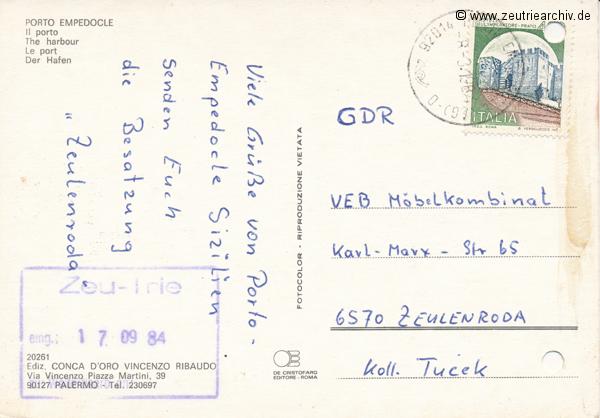 © www.zeutriearchiv.de
PORTO EMPEDOCLE
Il porto
The harbour
Le port
Der Hafen
92014
ITALIA
GDR
Viele Grüße von Porto-
Empedocle Sizilien
senden Euch
die Besatzung
"Zeulenroda"
FOTOCOLOR - RIPRODUZIONE VIETATA
VEB Möbelkombinat
Karl-Marx-Str 65
6570 ZEULENRODA
Koll. Tućek
Zeu-Trie
eing.: 17 09 84
20261
Ediz. CONCA D'ORO VINCENZO RIBAUDO
Via Vincenzo Piazza Martini, 39
90127 PALERMO - Tel. 230697
DE CRISTOFARO
EDITORE - ROMA